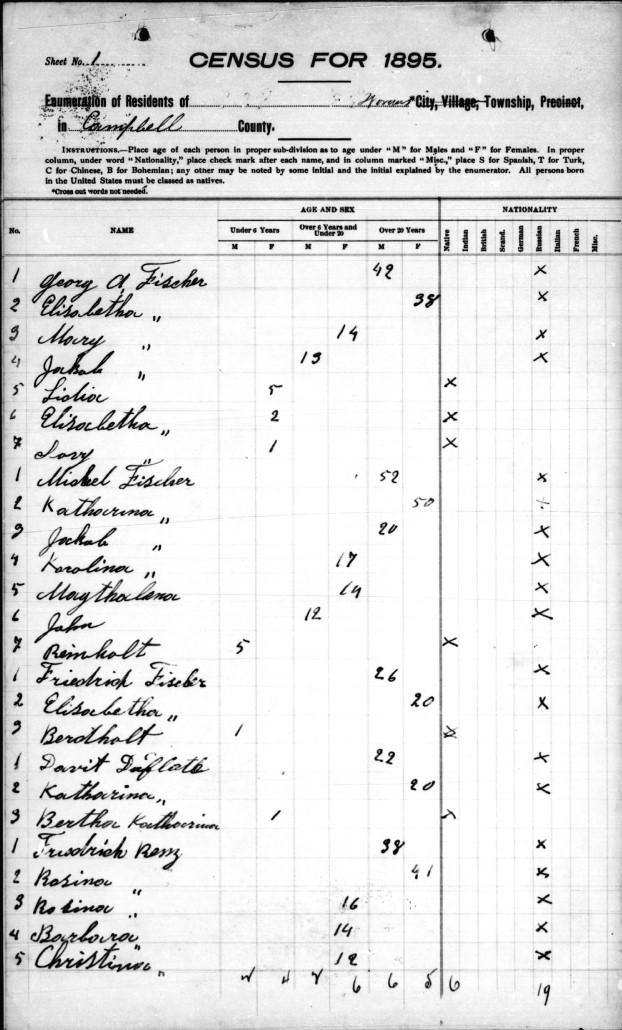 Sheet No. 1
CENSUS FOR 1895.
Enumeration of Residents of City, Village, Township, Precinct,
in Campbell County.
INSTRUCTIONS.—Place age of each person in proper sub-division as to age under "M" for Males and "F" for Females. In proper
column, under word "Nationality," place check mark after each name, and in column marked "Misc.," place S for Spanish, T for Turk,
C for Chinese, B for Bohemian; any other may be noted by some initial and the initial explained by the enumerator. All persons born
in the United States must be classed as natives.
*Cross out words not needed.
AGE AND SEX NATIONALITY
No. NAME Under 6 Years Over 6 Years and Under 20 Over 20 Years Native Indian British Scand. German Russian Italian French Misc.
M F M F M F
1 Georg A Fischer 42 x
2 Elisabetha " 38 x
3 Mary " 14 x
4 Jakob " 13 x
5 Lidia 5 x
6 Elisabetha " 2 x
7 " 1 x
1 Michel Fischer 52 x
2 Katharina " 50 x
3 Jakob " 20 x
4 Karolina " 17 x
5 Magthalena 14 x
6 John 12 x
7 Reinholt 5 x
1 Friedrich Fischer 26 x
2 Elisabetha " 20 x
3 Berdholt 1 x
1 Davit 22 x
2 Katharina " 20 x
3 Bertha Katharina 1 x
1 Friedrich Renz 38 x
2 Rosina " 41 x
3 Rosina " 16 x
4 Barbara " 14 x
5 Christina " 12 x
2 4 2 6 6 5 6 19